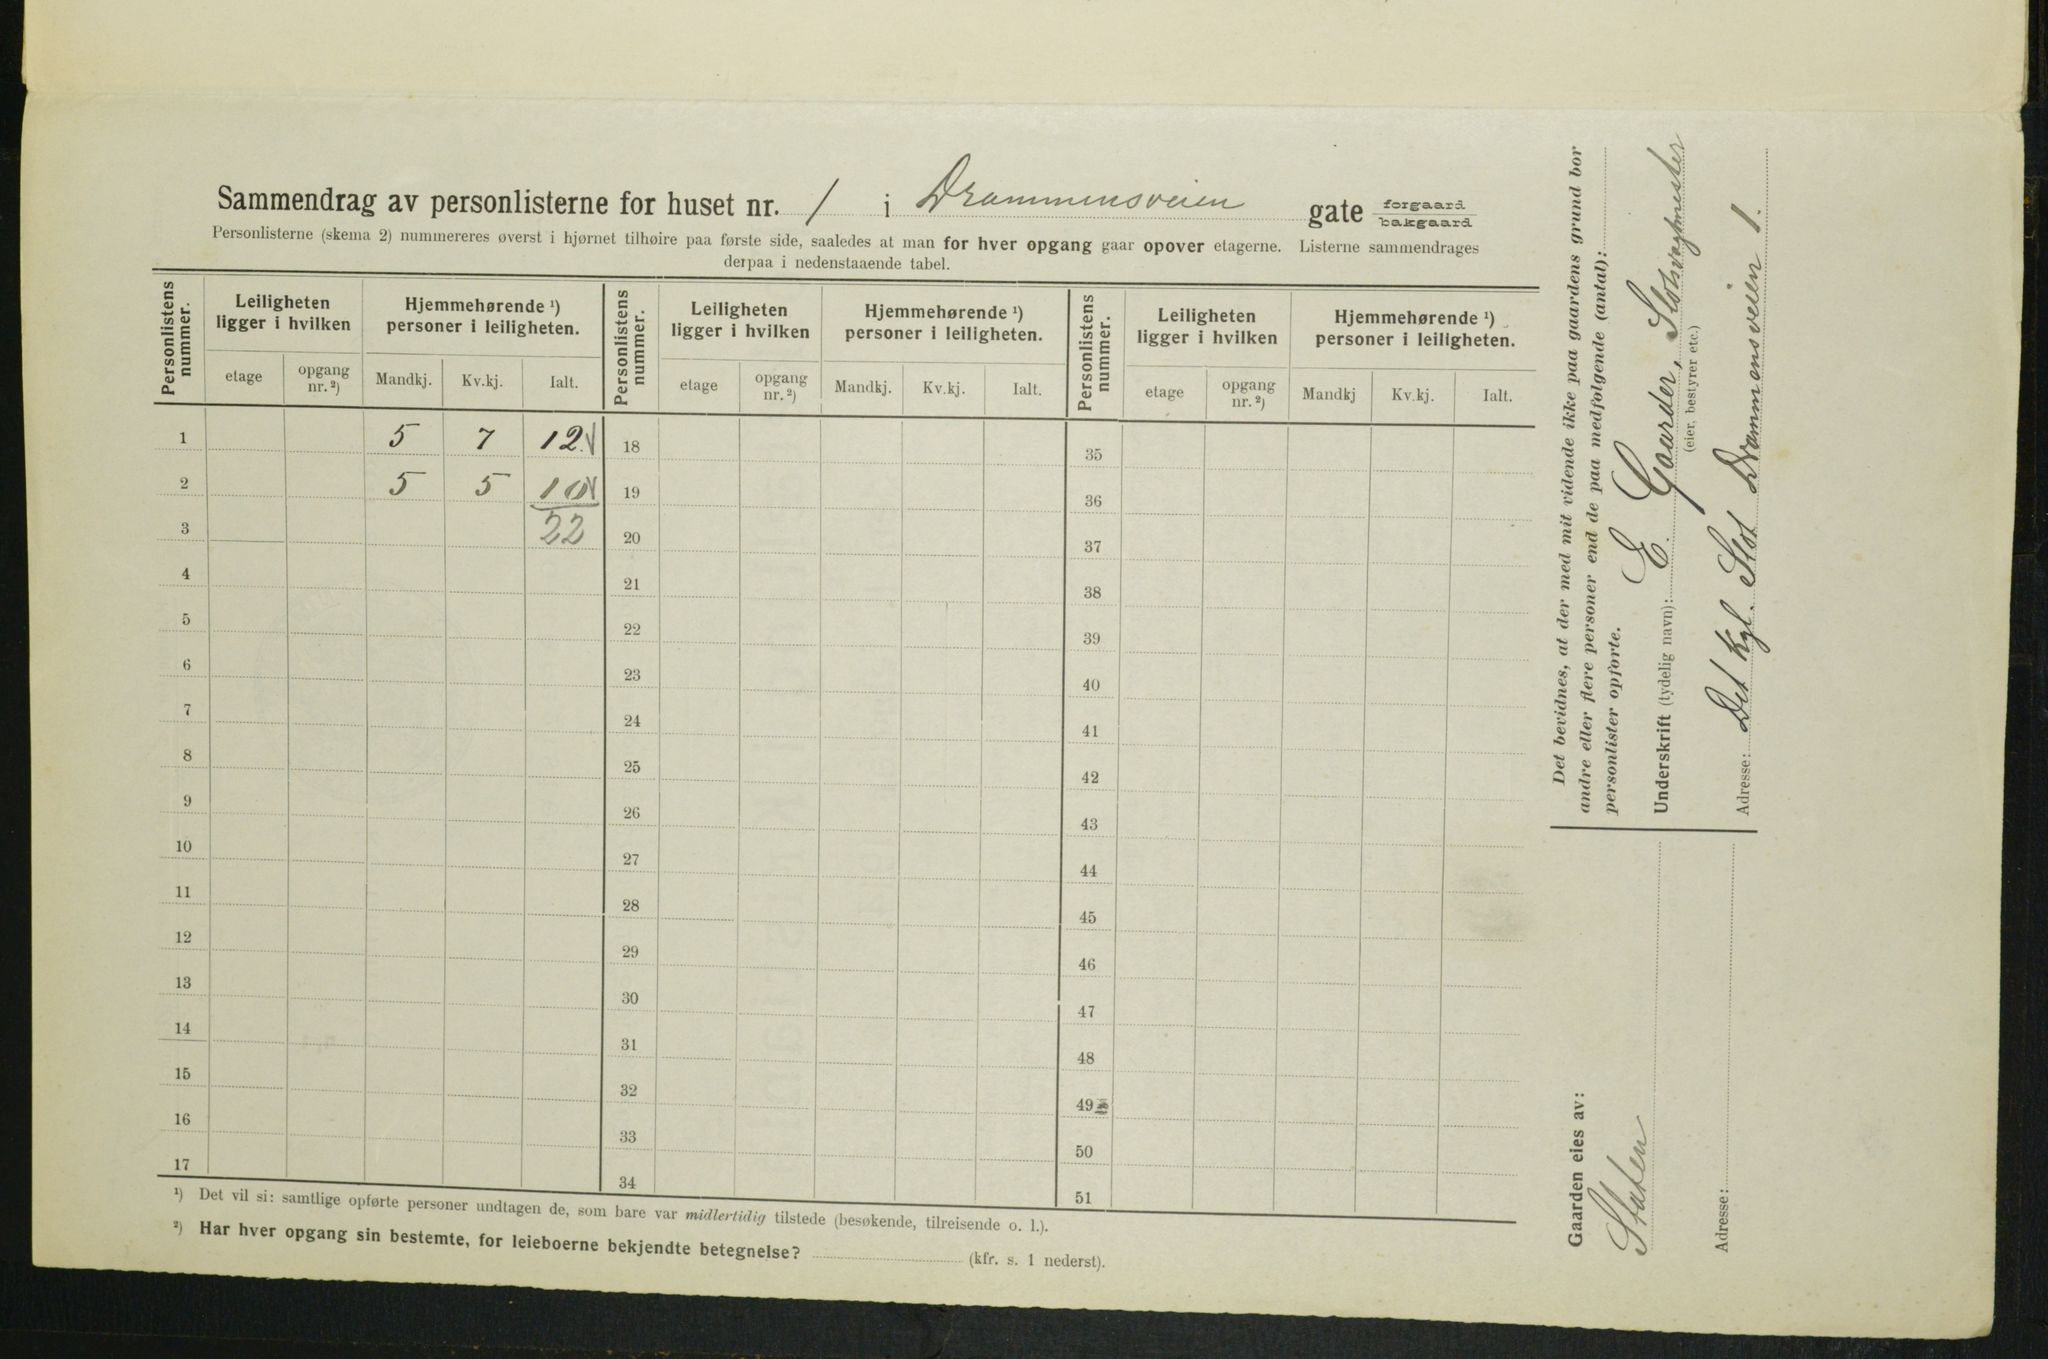 Sammendrag av personlisterne for huset nr. 1 i Drammensveien gate forgaard bakgaard
Personlisterne (skema 2) nummereres øverst i hjørnet tilhøire paa første side, saaledes at man for hver opgang gaar opover etagerne. Listerne sammendrages
derpaa i nedenstaaende tabel.
Personlistens nummer. Leiligheten ligger i hvilken Hjemmehørende ¹) personer i leiligheten. Personlistens nummer. Leiligheten ligger i hvilken Hjemmehørende ¹) personer i leiligheten. Personlistens nummer. Leiligheten ligger i hvilken Hjemmehørende ¹) personer i leiligheten.
etage opgang nr. ²) Mandkj. Kv.kj. Ialt. etage opgang nr. ²) Mandkj. Kv.kj. Ialt. etage opgang nr. ²) Mandkj Kv.kj. Ialt.
1 5 7 12. 18 35
2 5 5 10 19 36
3 22 20 37
4 21 38
5 22 39
6 23 40
7 24 41
8 25 42
9 26 43
10 27 44
11 28 45
12 29 46
13 30 47
14 31 48
15 32 49
16 33 50
17 34 51
¹) Det vil si: samtlige opførte personer undtagen de, som bare var midlertidig tilstede (besøkende, tilreisende o. l.).
²) Har hver opgang sin bestemte, for leieboerne bekjendte betegnelse? (kfr. s. 1 nederst).
Det bevidnes, at der med mit vidende ikke paa gaardens grund bor
andre eller flere personer end de paa medfølgende (antal):
personlister opførte.
Underskrift (tydelig navn): E. Gaarder, Slotsvagtmester
(eier, bestyrer etc.)
Adresse: Det kgl. Slot Drammensveien 1.
Gaarden eies av:
Staten
Adresse: